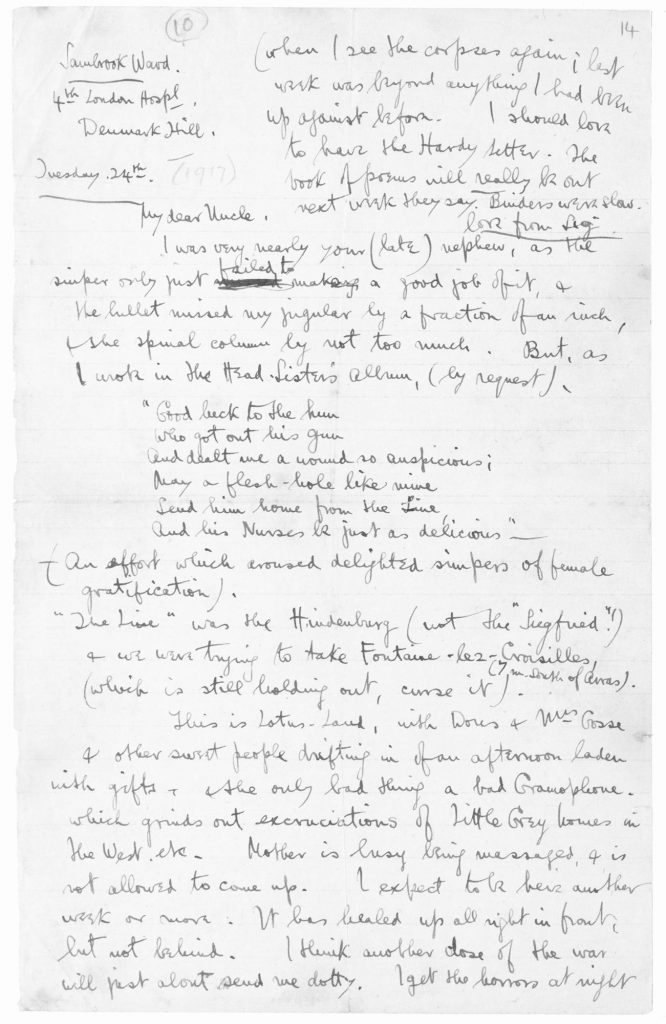 10
14
Sambrook Ward.
4th London Hospl.
Denmark Hill.
Tuesday. 24th. (1917)
My dear Uncle,
I was very nearly your (late) nephew, as the
sniper only just failed to make a good job of it, &
the bullet missed my jugular by a fraction of an inch,
& the spinal column by not too much. But, as
I wrote in the Head-Sister's album, (by request),
"Good luck to the hun
Who got out his gun
And dealt me a wound so auspicious;
May a flesh-hole like mine
Send him home from the Line,
And his Nurses be just as delicious" —
(An effort which aroused delighted simpers of female
gratification).
"The Line" was the Hindenburg (not the "Siegfried"!)
& we were trying to take Fontaine-lez-Croisilles,
(7 m. South of Arras).
(which is still holding out, curse it).
This is Lotus-Land, with Doris & Mrs Gosse
& other sweet people drifting in of an afternoon laden
with gifts - & the only bad thing a bad Gramophone.
which grinds out excruciations of Little Grey homes in
the West. etc. Mother is busy being massaged, & is
not allowed to come up. I expect to be here another
week or more. It has healed up all right in front,
but not behind. I think another dose of the war
will just about send me dotty. I get the horrors at night
(when I see the corpses again; last
week was beyond anything I had been
up against before. I should love
to have the Hardy letter. The
book of poems will really be out
next week they say. Binders were slow.
love from Sieg.